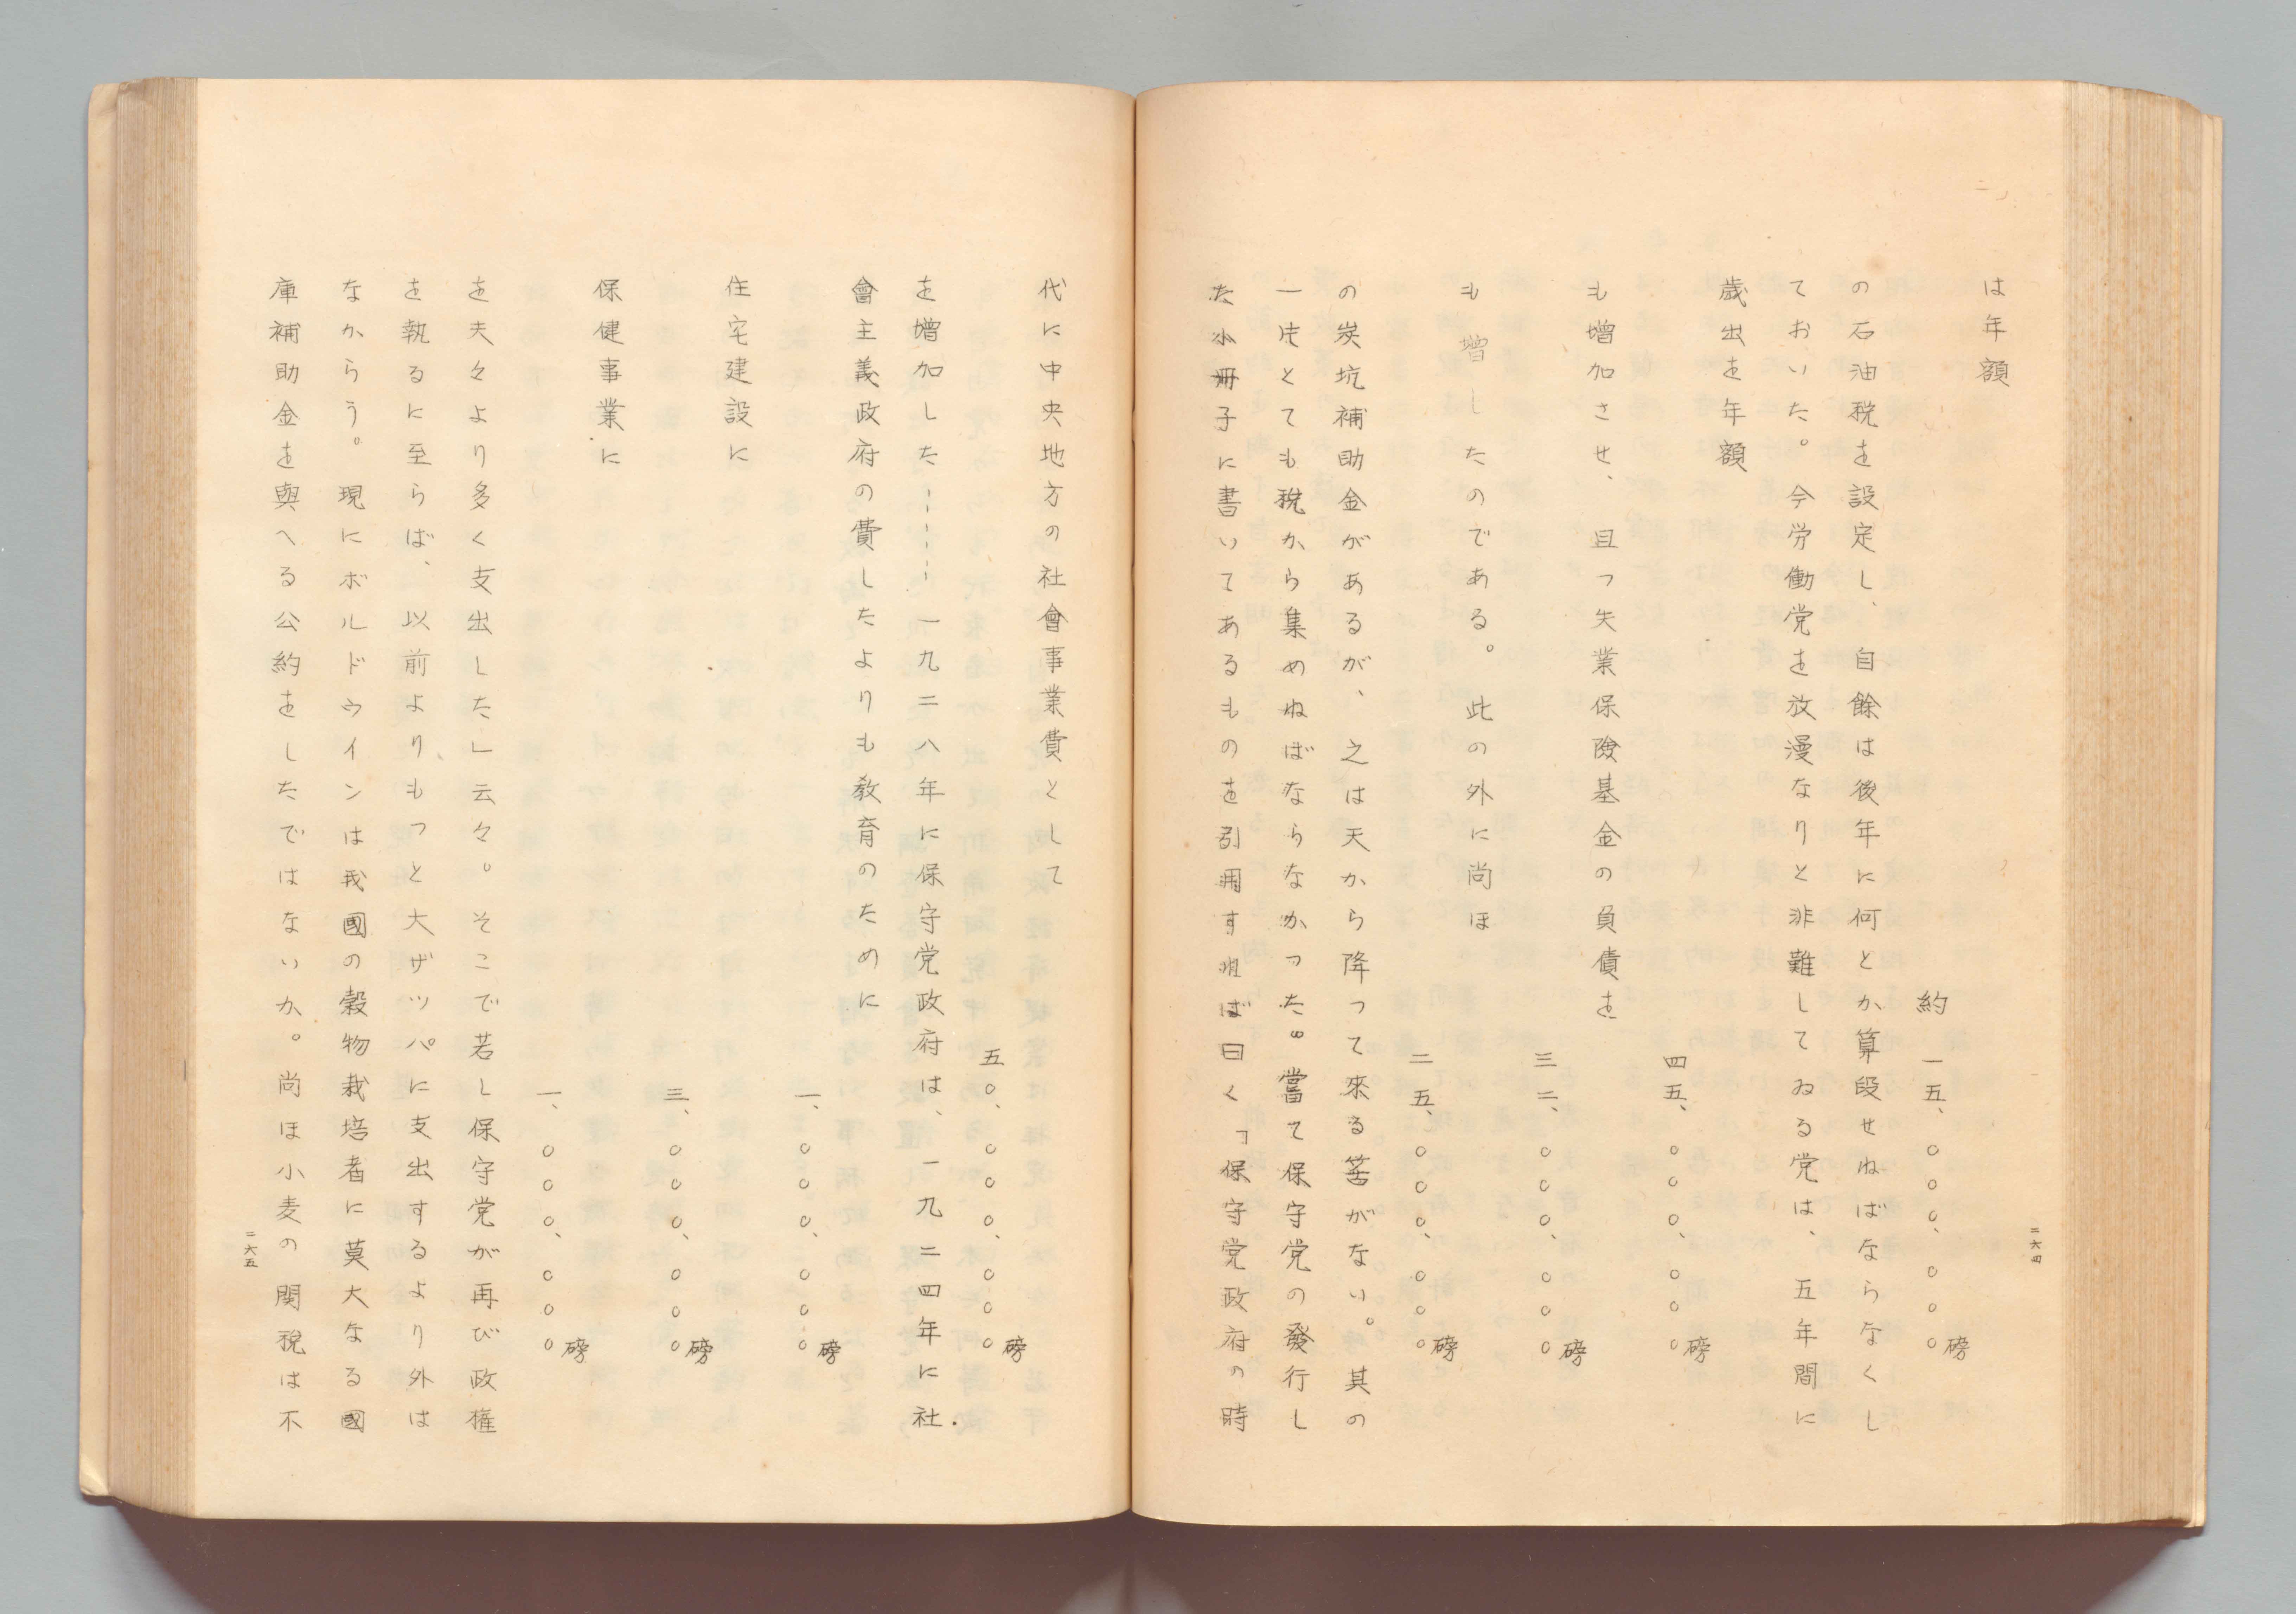 二六四
は年額
約 一五、〇〇〇、〇〇〇磅
の石油税を設定し、自餘は後年に何とか算段せねばならなくし
ておいた。今労働党を放漫なりと非難してゐる党は、五年間に
歳出を年額
四五、〇〇〇、〇〇〇磅
も増加させ、且つ失業保険基金の負債を
三二、〇〇〇、〇〇〇磅
も増したのである。此の外に尚ほ
二五、〇〇〇、〇〇〇磅
の炭坑補助金があるが、之は天から降つて來る筈がない。其の
一片とても税から集めねばならなかつた。嘗て保守党の發行し
た小冊子に書いてあるものを引用す れば曰く「保守党政府の時
代に中央地方の社會事業費として
五〇、〇〇〇、〇〇〇磅
を増加した…… 一九二八年に保守党政府は、一九二四年に社
會主義政府の費したよりも教育のために
一、〇〇〇、〇〇〇磅
住宅建設に
三、〇〇〇、〇〇〇磅
保健事業に
一、〇〇〇、〇〇〇磅
を夫々より多く支出した」云々。そこで若し保守党が再び政権
を執るに至らば、以前よりもつと大ザッパに支出するより外は
なからう。現にボルドウインは我國の穀物栽培者に莫大なる國
庫補助金を與へる公約をしたではないか。尚ほ小麦の関税は不
二六五